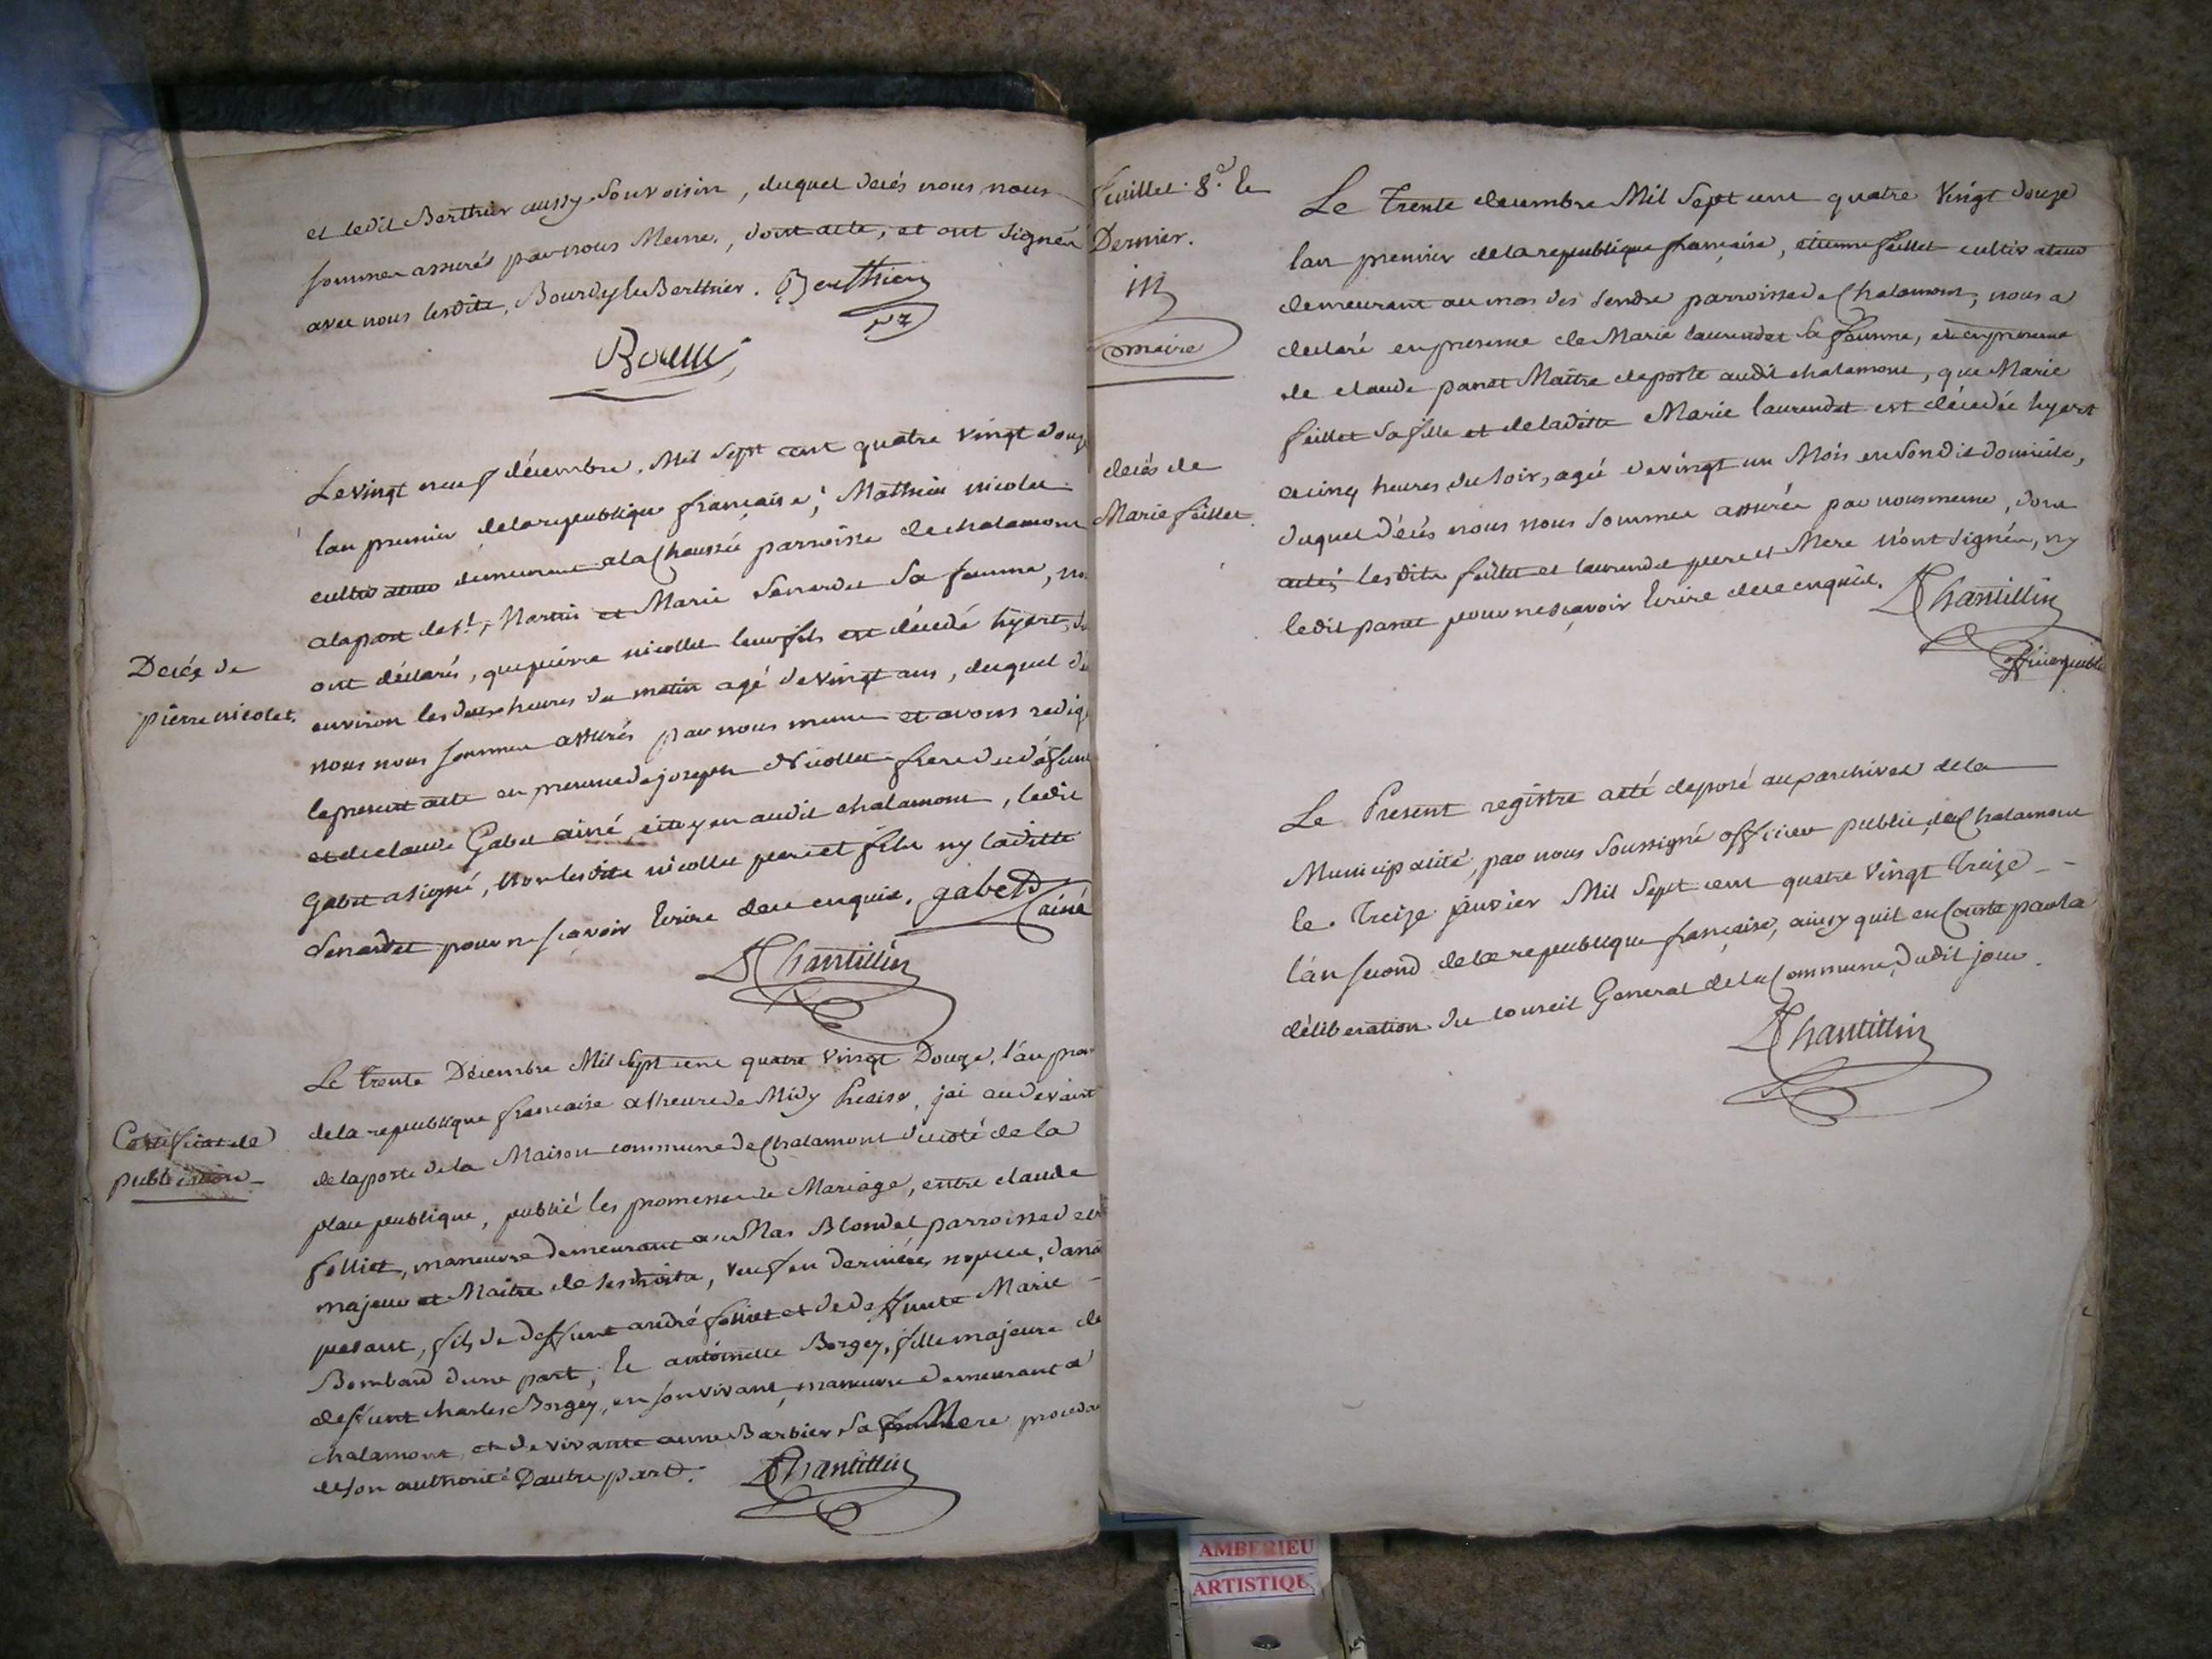 et ledit Berthier aussy Souvoisin, duquel decés nous nous
sommes assurés par nous Meme, dont acte, et ont signés
avec nous lesdits, Bourdy Berthier. Berthier
Decés de
pierre nicolet.
Le vingt neuf décembre, Mil Sept cent quatre vingt douze
lan premier delarepublique française, Mathieu nicolet
cultivateur demeurant ala Chaussée parroisse de chalamont
alapart de St. Martin et Marie Senardet Sa femme, no
ont déclarés, que pierre nicollet leur fils est décédé hyert, d
environ les deux heures du matin agé devingt ans, duquel dé
nous nous sommes assurés par nous meme et avons redigé
lepresent acte en presence de joseph Nicollet frere du défunt
et de claude Gabet ainé citoyen audit chalamont, ledit
Gabet a signé, Non lesdits nicollet pere et fils ny laditte
Senardet pour ne sçavoir Ecrire dece enquis. gabet ainé
Chantillin
Certificat de
publication
Le trente Décembre Mil Sept cent quatre Vingt Douze, l'an prem
dela republique francaise a lheure de Midy Precise, jai audevant
delaporte dela Maison commune de Chalamont ducoté de la
place publique, publié les promesses de Mariage, entre claude
folliet, maneuvre demeurant au Mas Blondel parroisse de
majeur et Maitre de ses droits, veuf en dernières nopces, dan
pesant, fils de deffunt andré folliet et de deffunte Marie
Bombard dune part; Et antoinette Borgey, fille majeure de
deffunt charles Borgey, en son vivant, maneuvre demeurant a
chalamont, et de vivante anne Barbier, Sa Mere proceda
deson authorité Dautre part. Chantillin
feuillet 8e. Et
Dernier.
maire
decés de
Marie feillet.
Le trente decembre Mil Sept cent quatre Vingt douze
lan premier delarepublique française, etienne feillet cultivateur
demeurant au mas des Sendre parroisse de Chalamont, nous a
declaré en presence de Marie laurendet Sa femme, et en presence
de claude panet Maître deposte audit chalamont, que Marie
feillet Sa fille et deladitte Marie laurendet est décedée hyert
acinq heures du soir, agée devingt un Mois en Sondit domicile,
duquel Décés nous nous Sommes assurée par nousmeme, dont
acte; lesdits feillet et laurendet pere et Mere n'ont signés, ny
ledit panet pour nesçavoir Ecrire dece enquis. Chantillin
officier public
Le Present registre aété deposé aux archives dela
Municipalité, par nous Soussigné officier public de Chalamont
le Treize janvier Mil Sept cent quatre Vingt Treize
l'an second dela republique française, ainsy quil en Conste parla
délibération du conseil General dela Commune, dudit jour.
Chantillin
AMBERIEU
ARTISTIQU